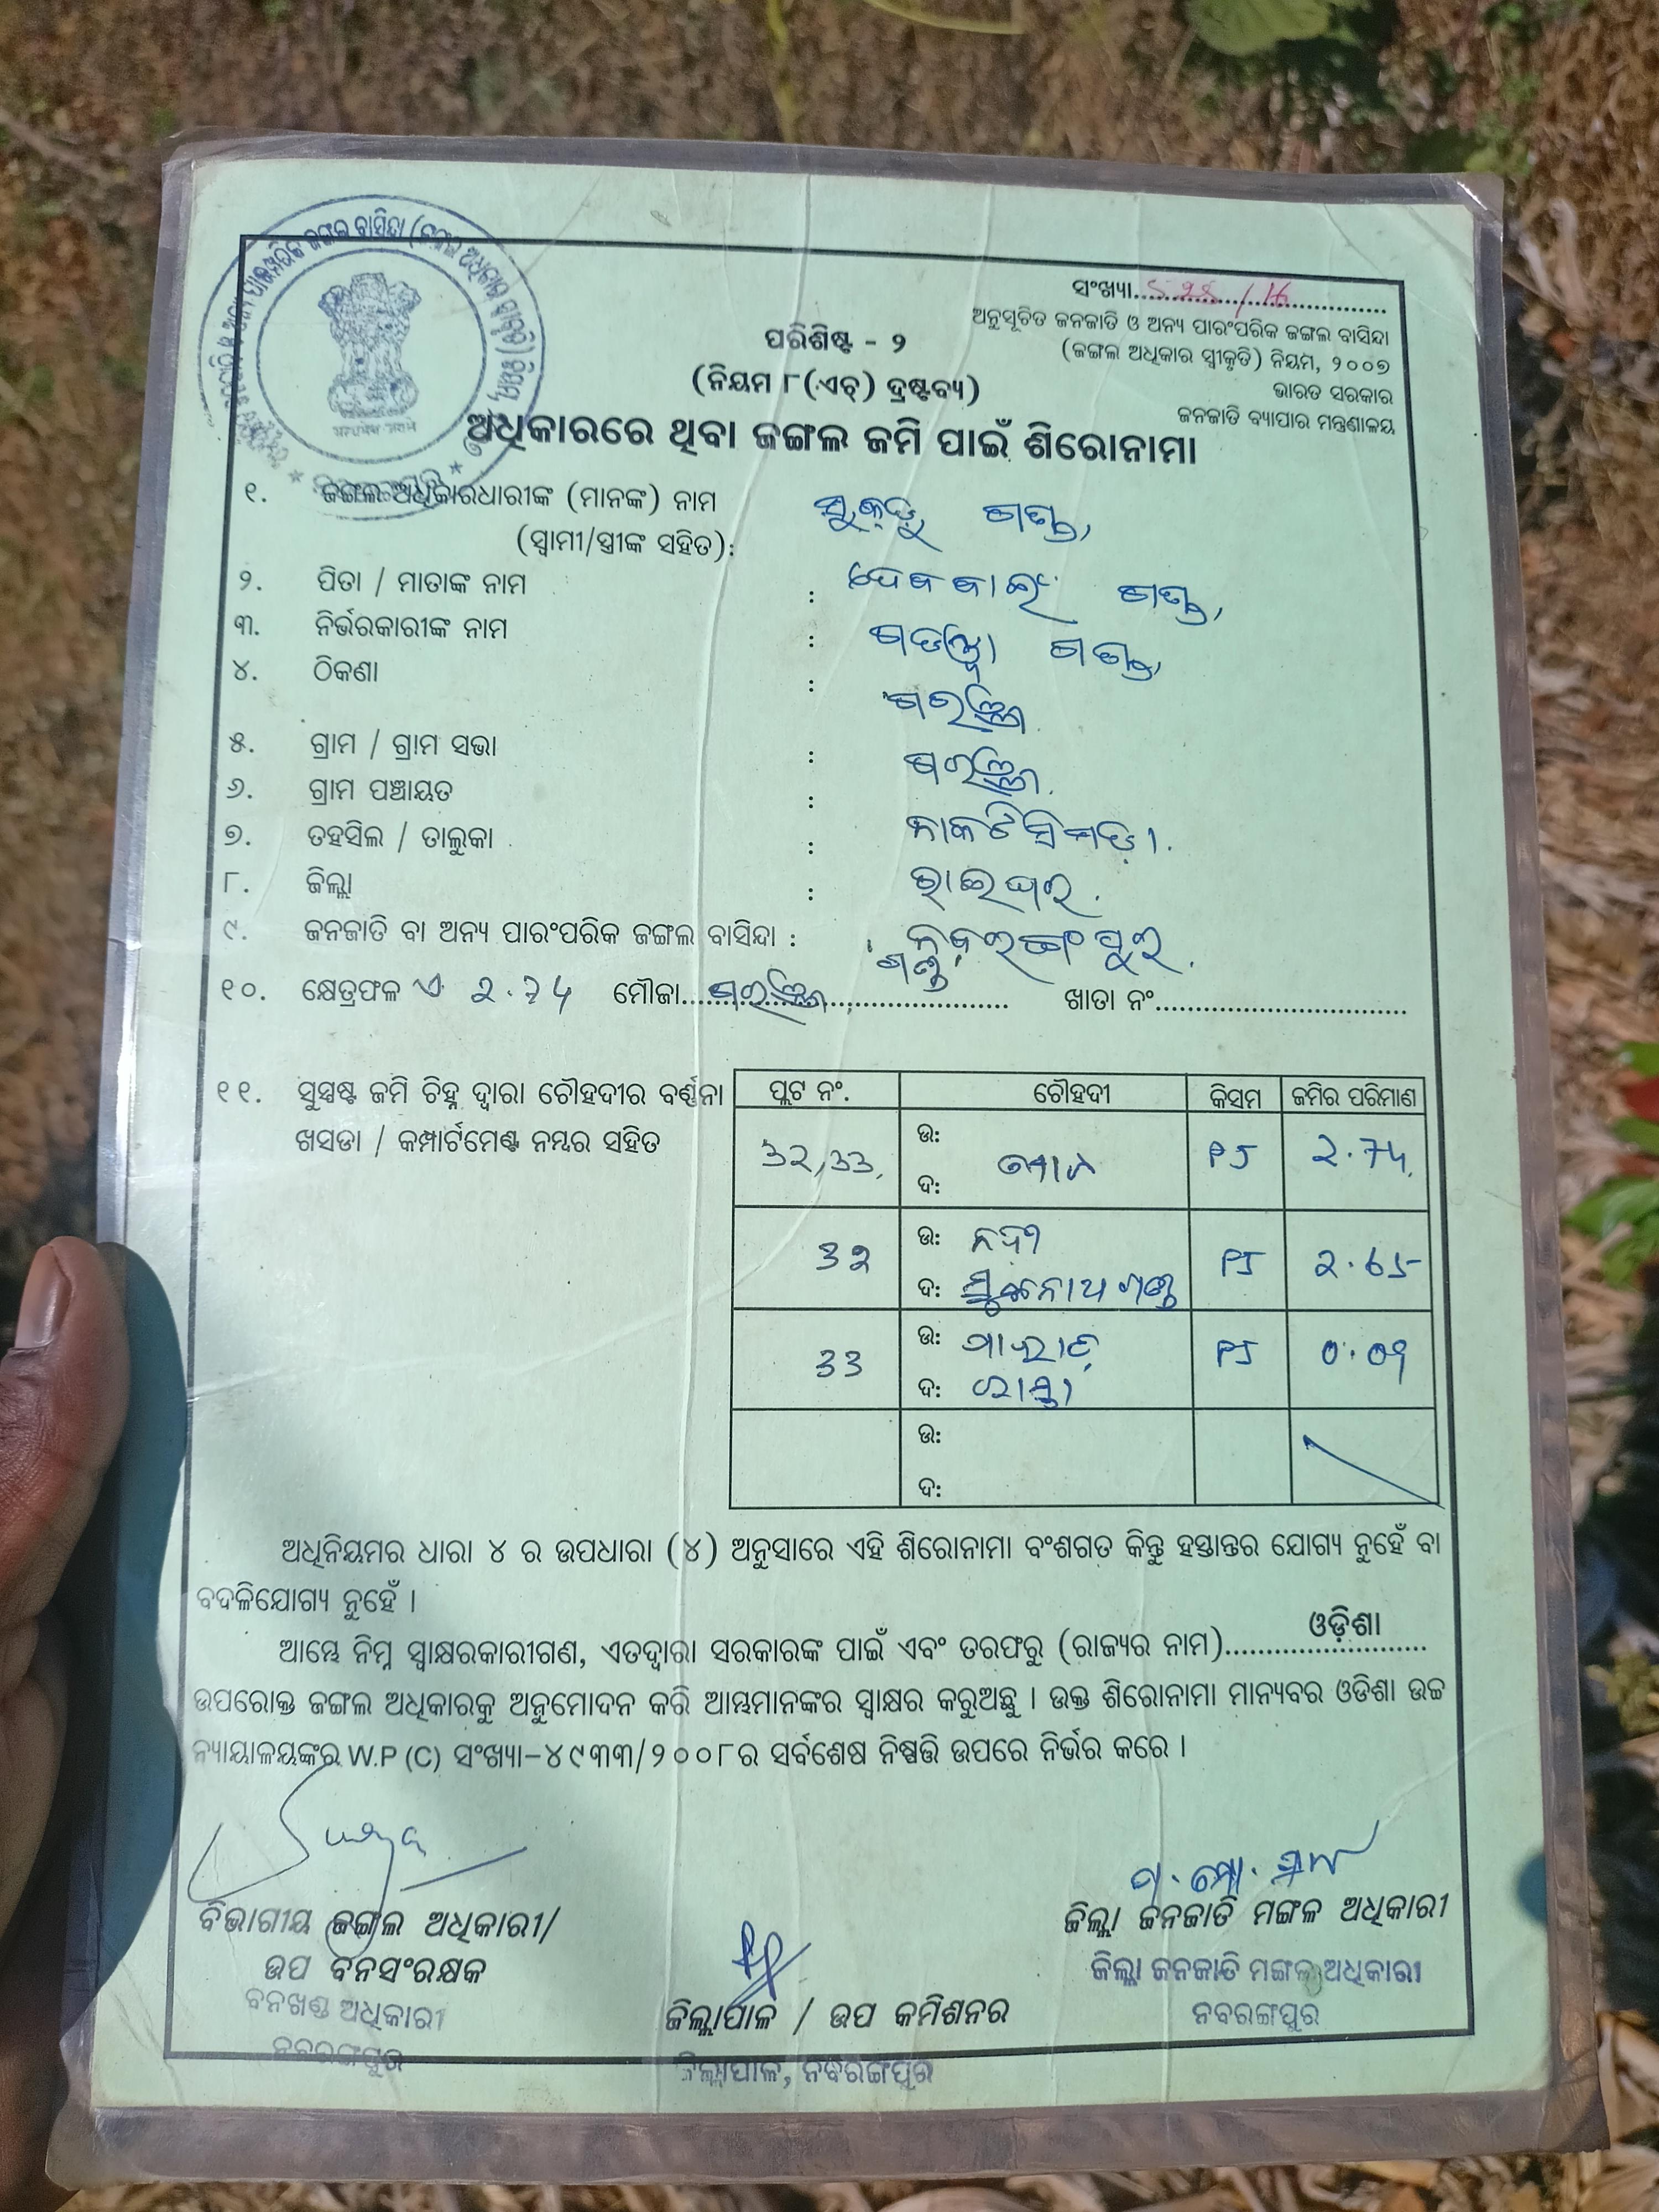 ସଂଖ୍ୟା..............................
ଅନୁସୂଚିତ ଜନଜାତି ଓ ଅନ୍ୟ ପାରଂପରିକ ଜଙ୍ଗଲ ବାସିନ୍ଦା
(ଜଙ୍ଗଲ ଅଧିକାର ସ୍ୱୀକୃତି) ନିୟମ, ୨୦୦୭
ଭାରତ ସରକାର
ଜନଜାତି ବ୍ୟାପାର ମନ୍ତ୍ରଣାଳୟ
ପରିଶିଷ୍ଟ - ୨
(ନିୟମ ୮(ଏଚ୍) ଦ୍ରଷ୍ଟବ୍ୟ)
ଅଧିକାରରେ ଥିବା ଜଙ୍ଗଲ ଜମି ପାଇଁ ଶିରୋନାମା
୧. ଜଙ୍ଗଲ ଅଧିକାରଧାରୀଙ୍କ (ମାନଙ୍କ) ନାମ
(ସ୍ୱାମୀ/ସ୍ତ୍ରୀଙ୍କ ସହିତ):
୨. ପିତା / ମାତାଙ୍କ ନାମ :
୩. ନିର୍ଭରକାରୀଙ୍କ ନାମ :
୪. ଠିକଣା :
୫. ଗ୍ରାମ / ଗ୍ରାମ ସଭା :
୬. ଗ୍ରାମ ପଞ୍ଚାୟତ :
୭. ତହସିଲ / ତାଲୁକା : ରାଇଘର
୮. ଜିଲ୍ଲା : ନବରଙ୍ଗପୁର
୯. ଜନଜାତି ବା ଅନ୍ୟ ପାରଂପରିକ ଜଙ୍ଗଲ ବାସିନ୍ଦା : ଗଣ୍ଡ
୧୦. କ୍ଷେତ୍ରଫଳ ଏ 2.74 ମୌଜା.............................. ଖାତା ନଂ..............................
୧୧. ସୁସ୍ପଷ୍ଟ ଜମି ଚିହ୍ନ ଦ୍ୱାରା ଚୌହଦୀର ବର୍ଣ୍ଣନା
ଖସଡା / କମ୍ପାର୍ଟମେଣ୍ଟ ନମ୍ବର ସହିତ
ପ୍ଲଟ ନଂ. ଚୌହଦୀ କିସମ ଜମିର ପରିମାଣ
32,33, ଉ: ଦ: PJ 2.74
32 ଉ: ନଦୀ PJ 2.65
ଦ:
33 ଉ: PJ 0.09
ଦ: ରାସ୍ତା
ଉ:
ଦ:
ଅଧିନିୟମର ଧାରା ୪ ର ଉପଧାରା (୪) ଅନୁସାରେ ଏହି ଶିରୋନାମା ବଂଶଗତ କିନ୍ତୁ ହସ୍ତାନ୍ତର ଯୋଗ୍ୟ ନୁହେଁ ବା
ବଦଳିଯୋଗ୍ୟ ନୁହେଁ ।
ଆମ୍ଭେ ନିମ୍ନ ସ୍ୱାକ୍ଷରକାରୀଗଣ, ଏତଦ୍ୱାରା ସରକାରଙ୍କ ପାଇଁ ଏବଂ ତରଫରୁ (ରାଜ୍ୟର ନାମ)........ଓଡ଼ିଶା........
ଉପରୋକ୍ତ ଜଙ୍ଗଲ ଅଧିକାରକୁ ଅନୁମୋଦନ କରି ଆମ୍ଭମାନଙ୍କର ସ୍ୱାକ୍ଷର କରୁଅଛୁ । ଉକ୍ତ ଶିରୋନାମା ମାନ୍ୟବର ଓଡିଶା ଉଚ୍ଚ
ନ୍ୟାୟାଳୟଙ୍କର W.P (C) ସଂଖ୍ୟା-୪୯୩୩/୨୦୦୮ର ସର୍ବଶେଷ ନିଷ୍ପତ୍ତି ଉପରେ ନିର୍ଭର କରେ ।
ବିଭାଗୀୟ ଜଙ୍ଗଲ ଅଧିକାରୀ/
ଉପ ବନସଂରକ୍ଷକ
ବନଖଣ୍ଡ ଅଧିକାରୀ
ନବରଙ୍ଗପୁର
ଜିଲ୍ଲାପାଳ / ଉପ କମିଶନର
ଜିଲ୍ଲାପାଳ, ନବରଙ୍ଗପୁର
ଜିଲ୍ଲା ଜନଜାତି ମଙ୍ଗଳ ଅଧିକାରୀ
ଜିଲ୍ଲା ଜନଜାତି ମଙ୍ଗଳ ଅଧିକାରୀ
ନବରଙ୍ଗପୁର